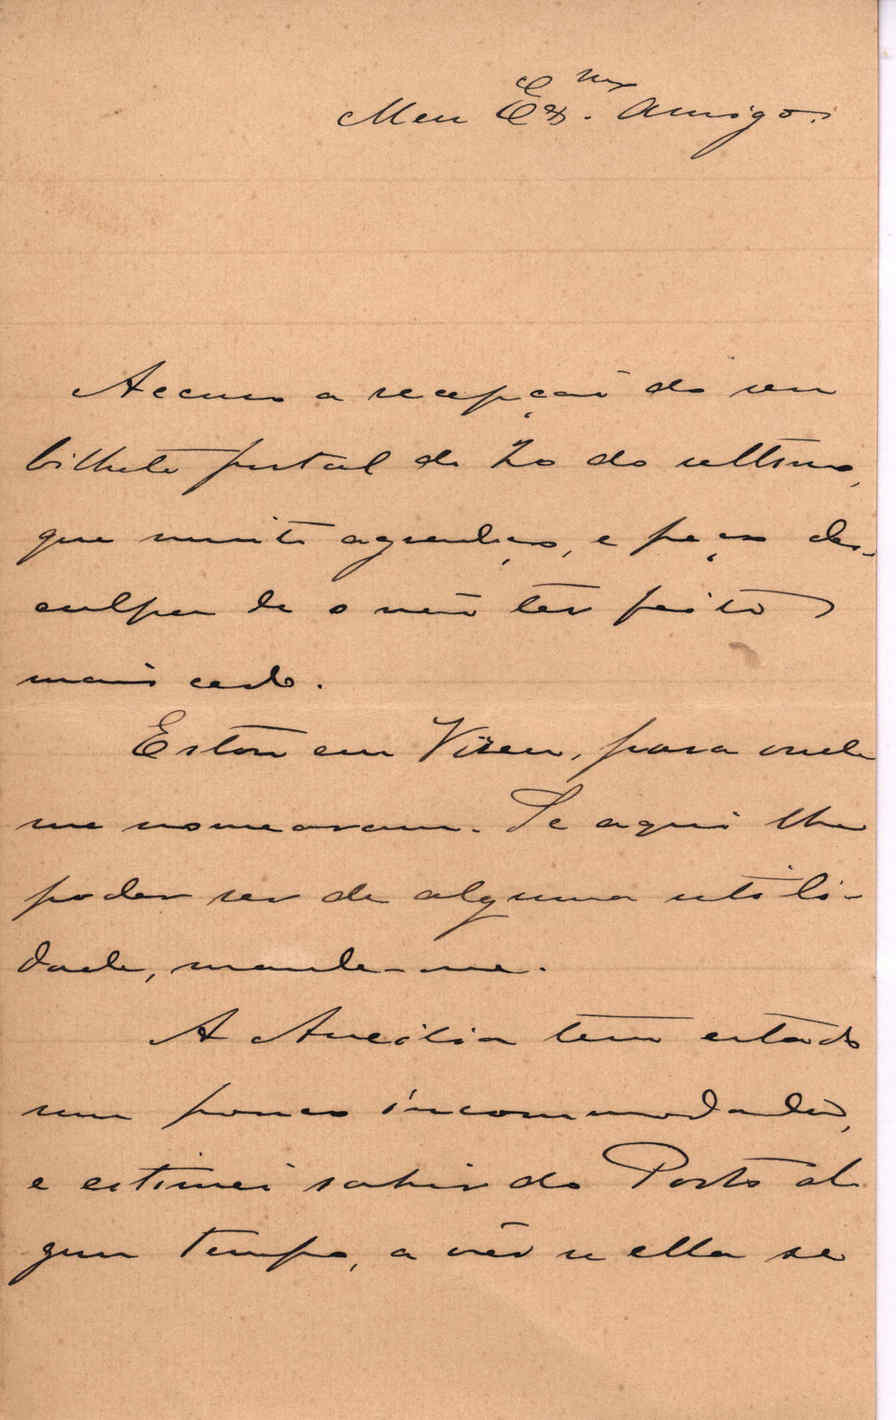 Meu Ex.mo Amigo.
Accuso a recepção do seu
bilhete postal de 20 do ultimo,
que muito agradeço, e peço des-
culpa de o não ter feito
mais cedo.
Estou em Vizeu, para onde
me nomearam. Se aqui lhe
poder ser de alguma utili-
dade, mande-me.
A Aurélia tem estado
um pouco incommodada,
e estimei sahir do Porto al
gum tempo, a vêr se ella se